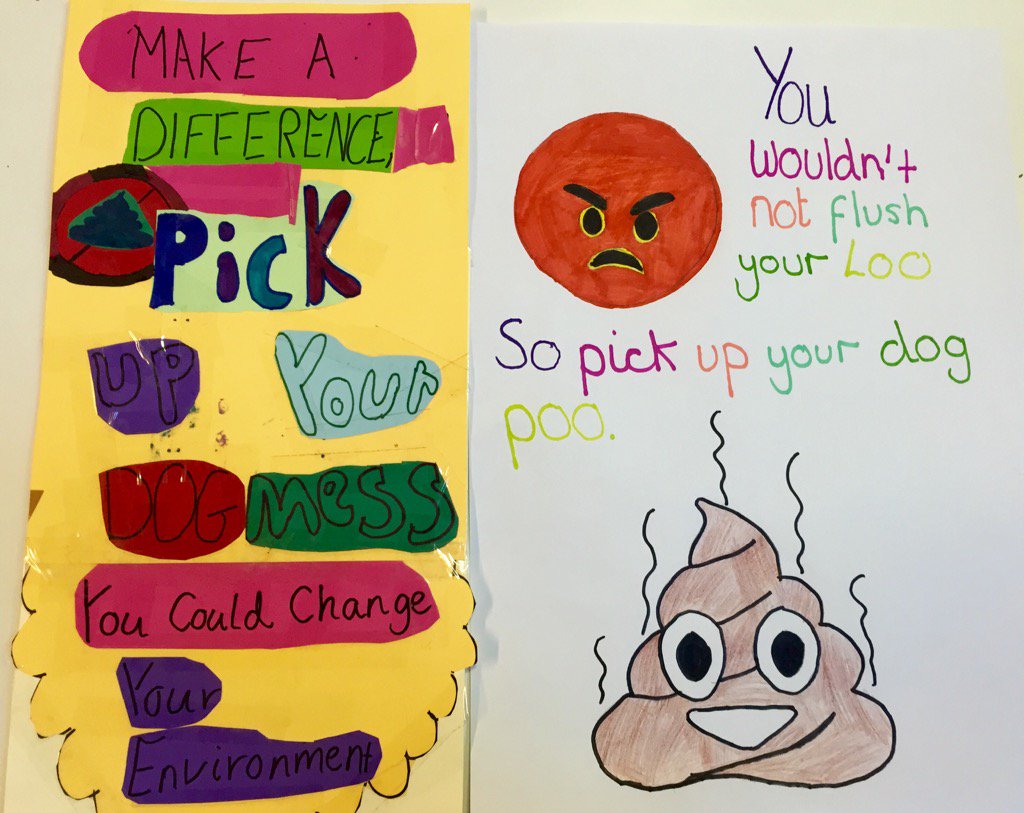 MAKE A
DIFFERENCE,
PICK
UP Your
DOG MESS
You Could Change
Your
Environment
You
wouldn't
not flush
your Loo
So pick up your dog
poo.